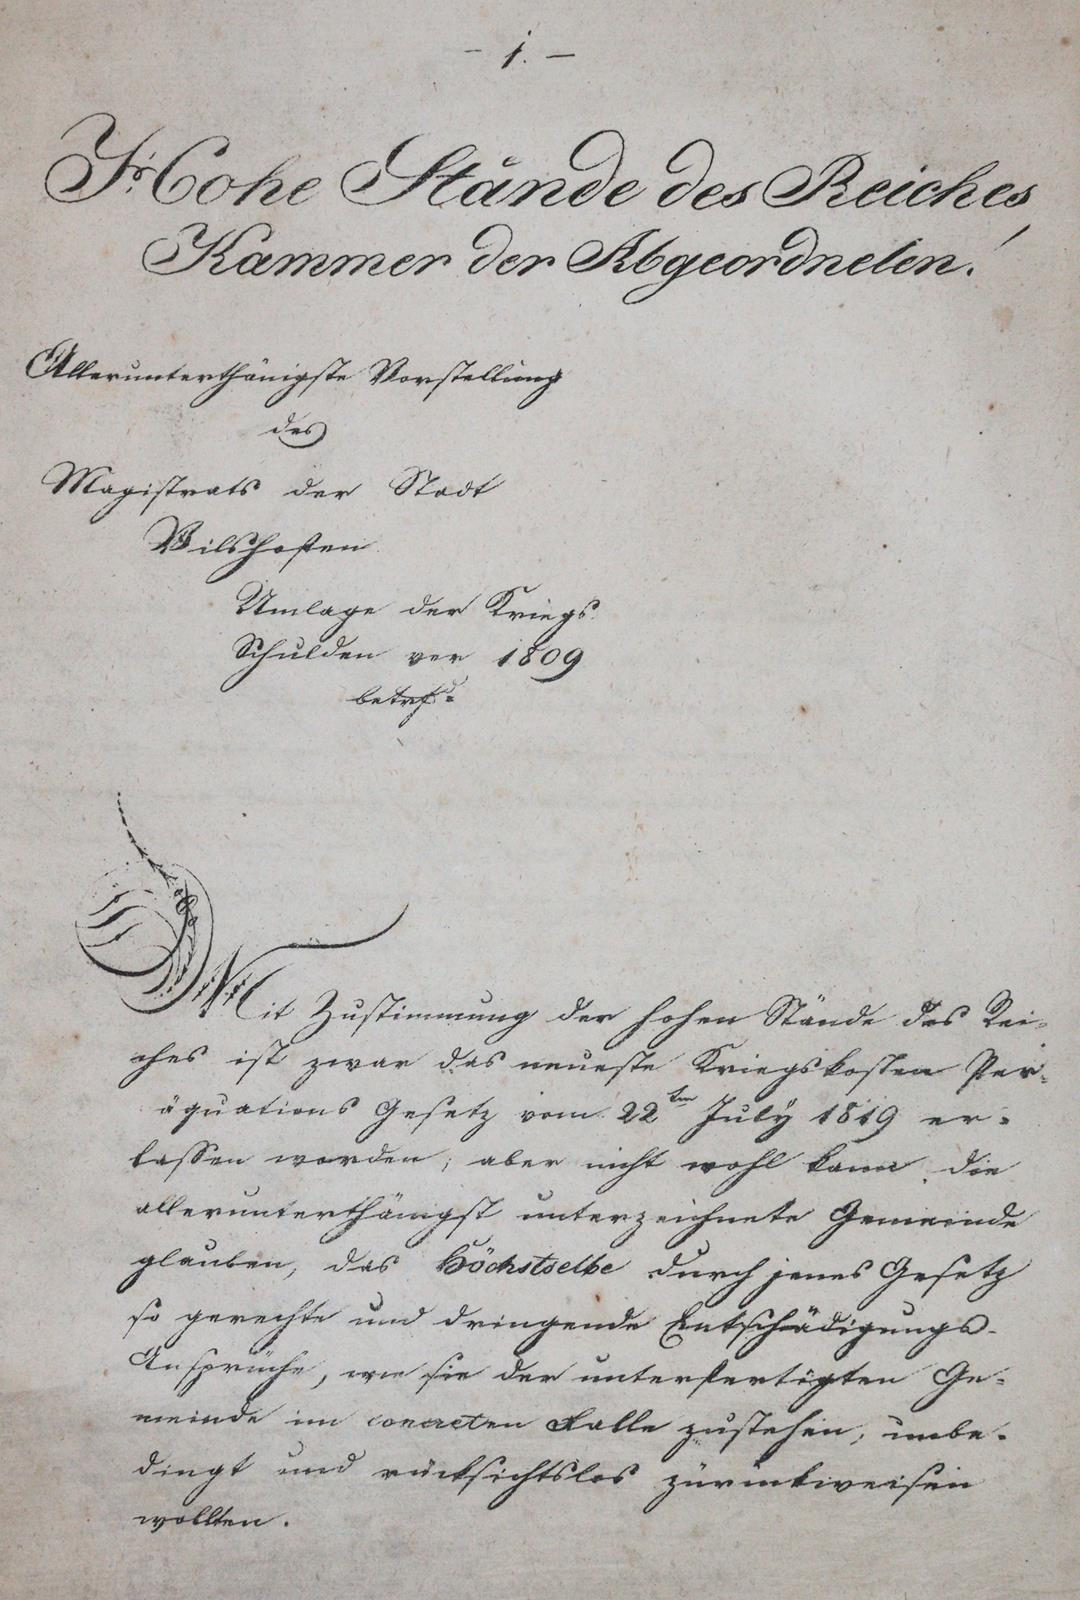 - 1. -
Hohe Stände des Reiches,
Kammer der Abgeordneten!
Allerunterthänigste Vorstellung
des
Magistrats der Stadt
Vilshofen
Umlage der Kriegs
Schulden per 1809
betrfd:
Mit Zustimmung der hohen Stände des Rei-
ches ist zwar das neueste Kriegskosten Per-
äquations Gesetz vom 22ten July 1819 er-
lassen worden; aber nicht wohl kann die
allerunterthänigst unterzeichnete Gemeinde
glauben, das Höchstselbe durch jenes Gesetz
so gerechte und dringende Entschädigungs-
Ansprüche, wie sie der unterfertigten Ge-
meinde im concreten Falle zustehen, unbe-
dingt und rücksichtslos zürückweisen
wollten.